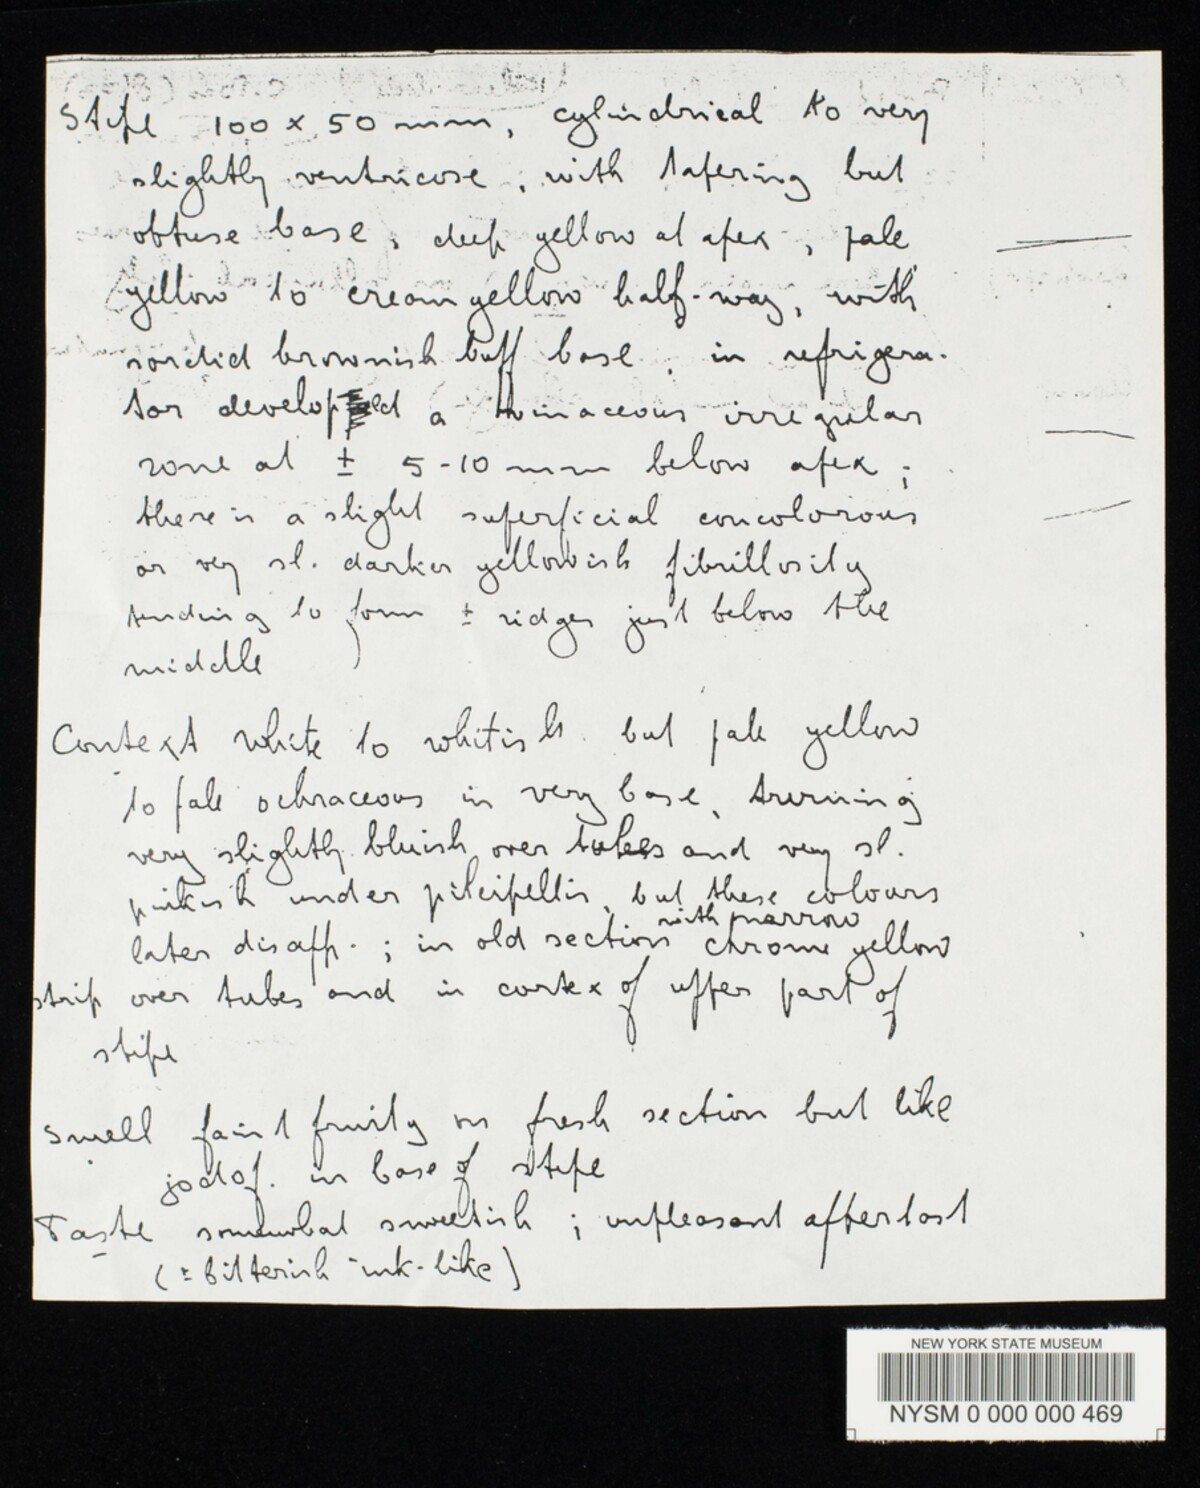 Stipe 100 x 50 mm, cylindrical to very
slightly ventricose, with tapering but
obtuse base, deep yellow at apex, pale
yellow to cream yellow half-way, with
sordid brownish buff base, in refrigera-
tor developed a vinaceous irregular
zone at ± 5-10 mm below apex;
there is a slight superficial concolorous
or very sl. darker yellowish fibrillosity
tending to form ± ridges just below the
middle
Context white to whitish but pale yellow
to pale ochraceous in very base, turning
very slightly bluish over tubes and very sl.
pinkish under pileipellis, but these colours
with narrow
later disapp.; in old section chrome yellow
strip over tubes and in cortex of upper part of
stipe
Smell faint fruity on fresh section but like
jodof. in base of stipe
Taste somewhat sweetish; unpleasant aftertast
(± bitterish ink-like)
NEW YORK STATE MUSEUM
NYSM 0 000 000 469